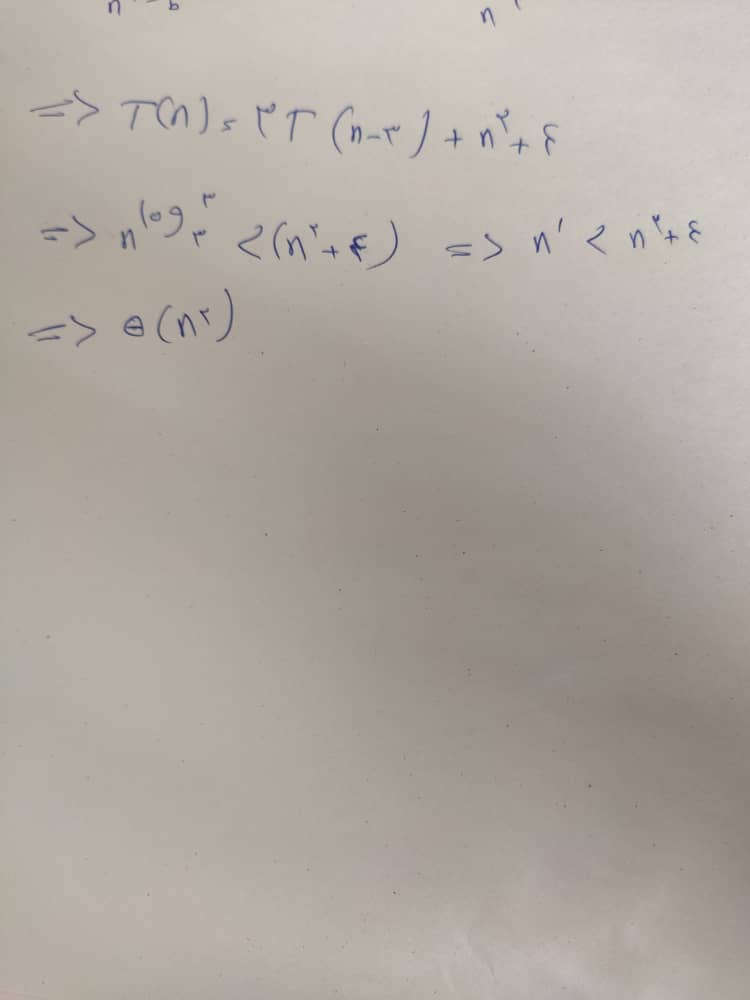 => T(n) = ۳T(n-۳) + n^۲ + ۴
=> n^log_۳ ۳ < (n^۲ + ۴) => n^۱ < n^۲ + ۴
=> θ(n^۲)